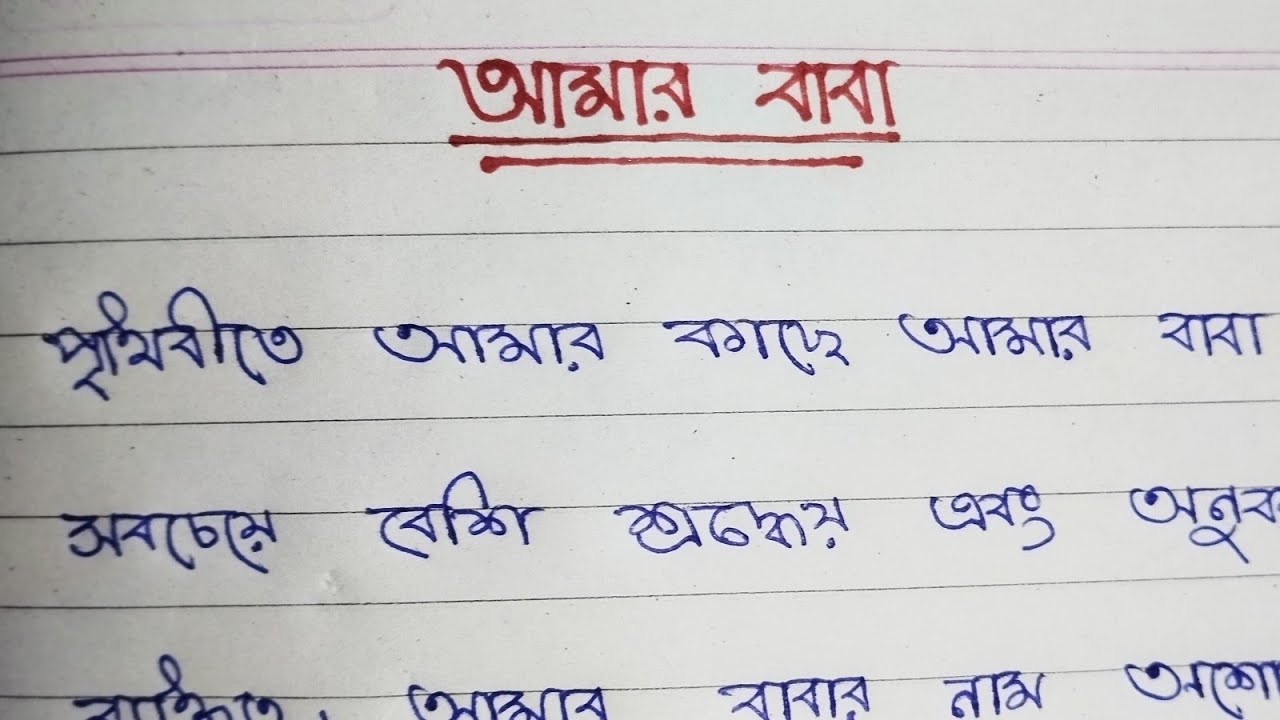 আমার বাবা
পৃথিবীতে আমার কাছে আমার বাবা
সবচেয়ে বেশি শ্রদ্ধেয় এবং
আমার বাবার নাম